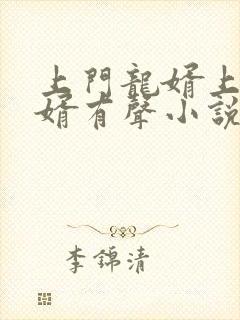 上門龍婿上
婿有聲小説
李錦清